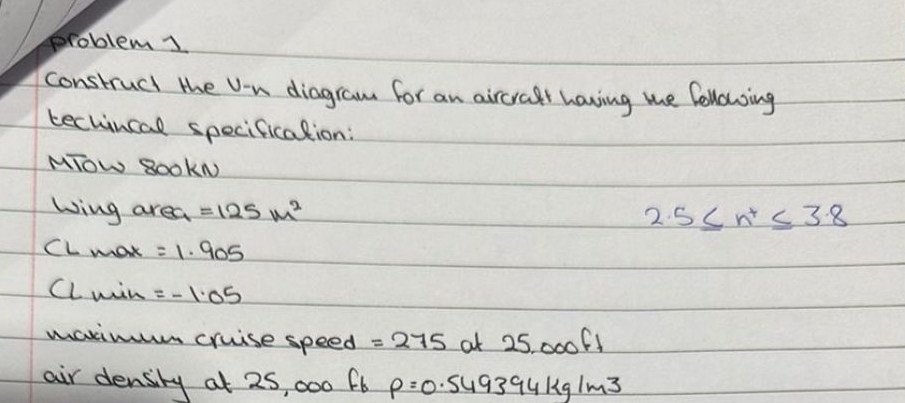 problem 1
Construct the V-n diagram for an aircraft having the following
techincal specification:
MTOW 800KN
Wing area = 125 m²
2.5 ≤ n⁺ ≤ 3.8
CL max = 1.905
CL min = -1.05
maximum cruise speed = 275 at 25,000ft
air density at 25,000 ft ρ=0.549394 kg/m3